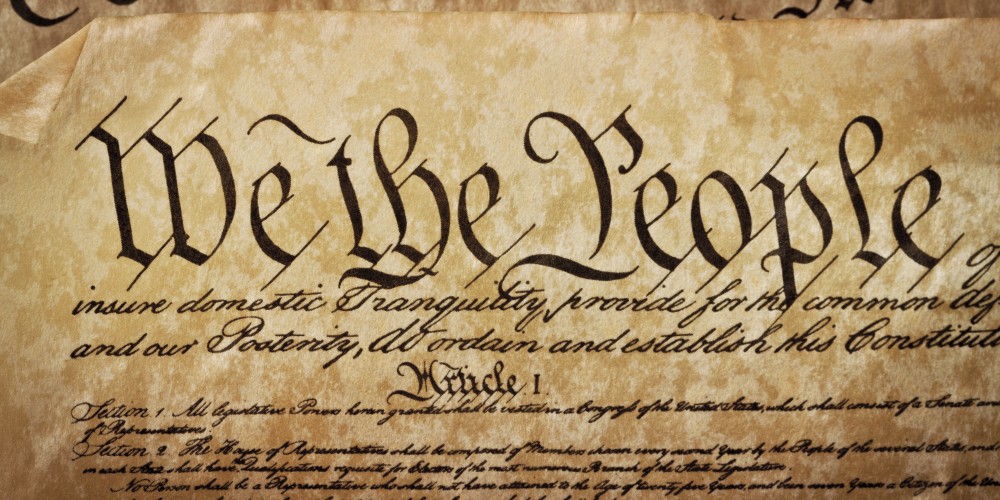 We the People of
insure domestic Tranquility, provide for the common def
and our Posterity, do ordain and establish this Constituti
Article I.
Section 1. All legislative Powers herein granted shall be vested in a Congress of the United States, which shall consist of a Senate an
of Representatives.
Section 2. The House of Representatives shall be composed of Members chosen every second Year by the People of the several States, and
in each State shall have Qualifications requisite for Electors of the most numerous Branch of the State Legislature.
No Person shall be a Representative who shall not have attained to the Age of twenty five Years, and been seven Years a Citizen of the Un